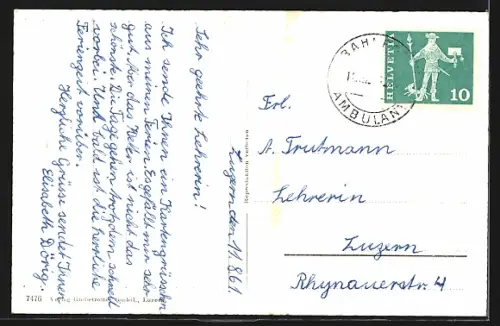 Luzern den 11.8.61.
Sehr geehrte Lehrerin!
Ich sende Ihnen ein Kartengrüsschen
aus meinen Ferien. Es gefällt mir sehr
gut. Aber das Wetter ist nicht das
schönste. Die Tage gehen trotzdem schnell
vorbei. Und bald ist die herrliche
Ferienzeit vorüber.
Herzliche Grüsse sendet Ihnen
Elisabeth Dörig.
7476
Reproduktion verboten
BAHN
AMBULANT
HELVETIA
10
Frl.
A. Trutmann
Lehrerin
Luzern
Rhynauerstr. 4